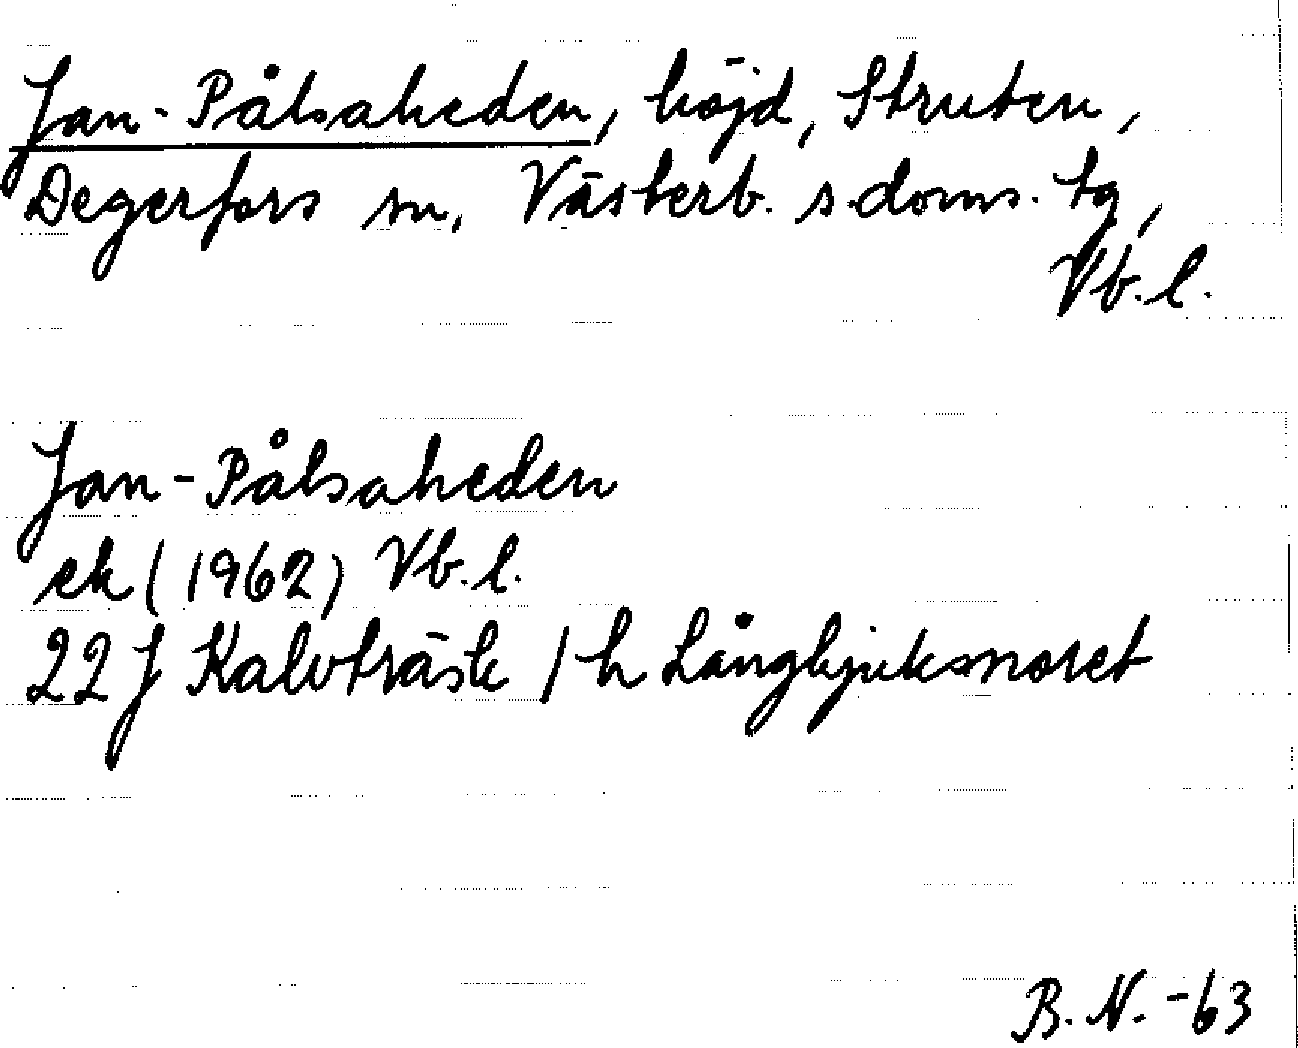 Jan-Pålsaheden, höjd, Struten,
Degerfors sn, Västerb. s. doms. tg,
Vb. l.
Jan-Pålsaheden
ek (1962) Vb. l.
22 J Kalvträsk / h Långbjuksmoret
B. N. -63